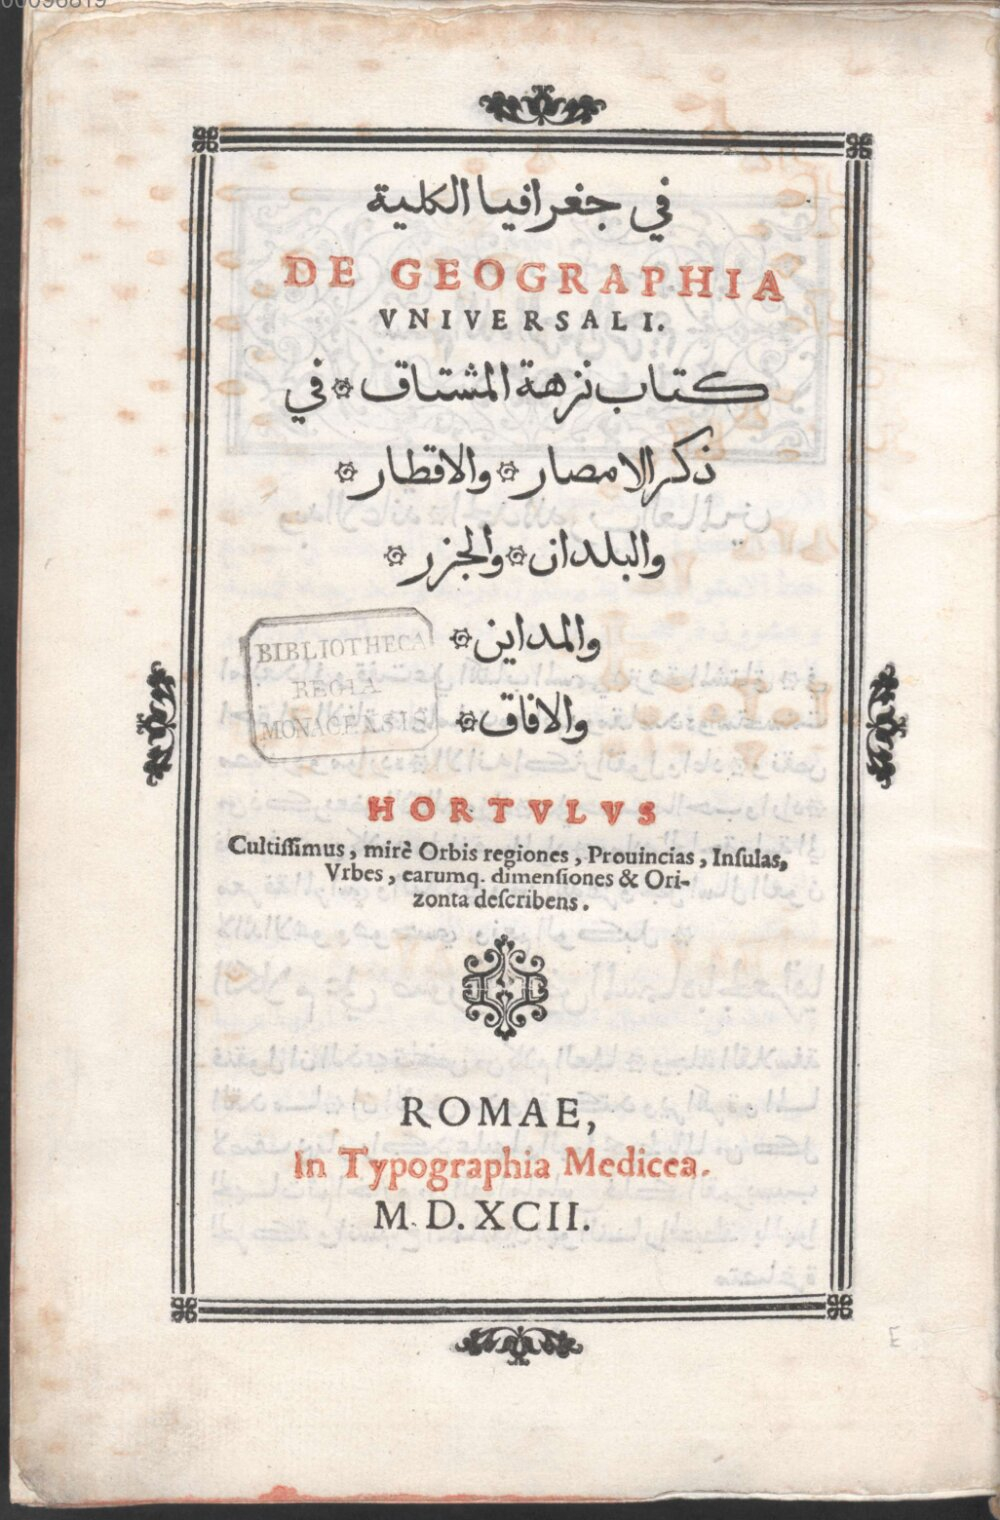 00096819
في جغرافيا الكلية
DE GEOGRAPHIA
VNIVERSALI.
كتاب نزهة المشتاق ۞ في
ذكر الامصار ۞ والاقطار ۞
والبلدان ۞ والجزر ۞
والمداين ۞
والافاق ۞
BIBLIOTHECA
REGIA
MONACENSIS
HORTVLVS
Cultiſſimus, mirè Orbis regiones, Prouincias, Inſulas,
Vrbes, earumq. dimenſiones & Ori-
zonta deſcribens.
ROMAE,
In Typographia Medicea.
M. D. XCII.